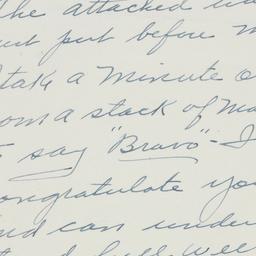 The attached
put before
take a minute
from a stack of
say "Bravo" - I
congratulate you
and can under